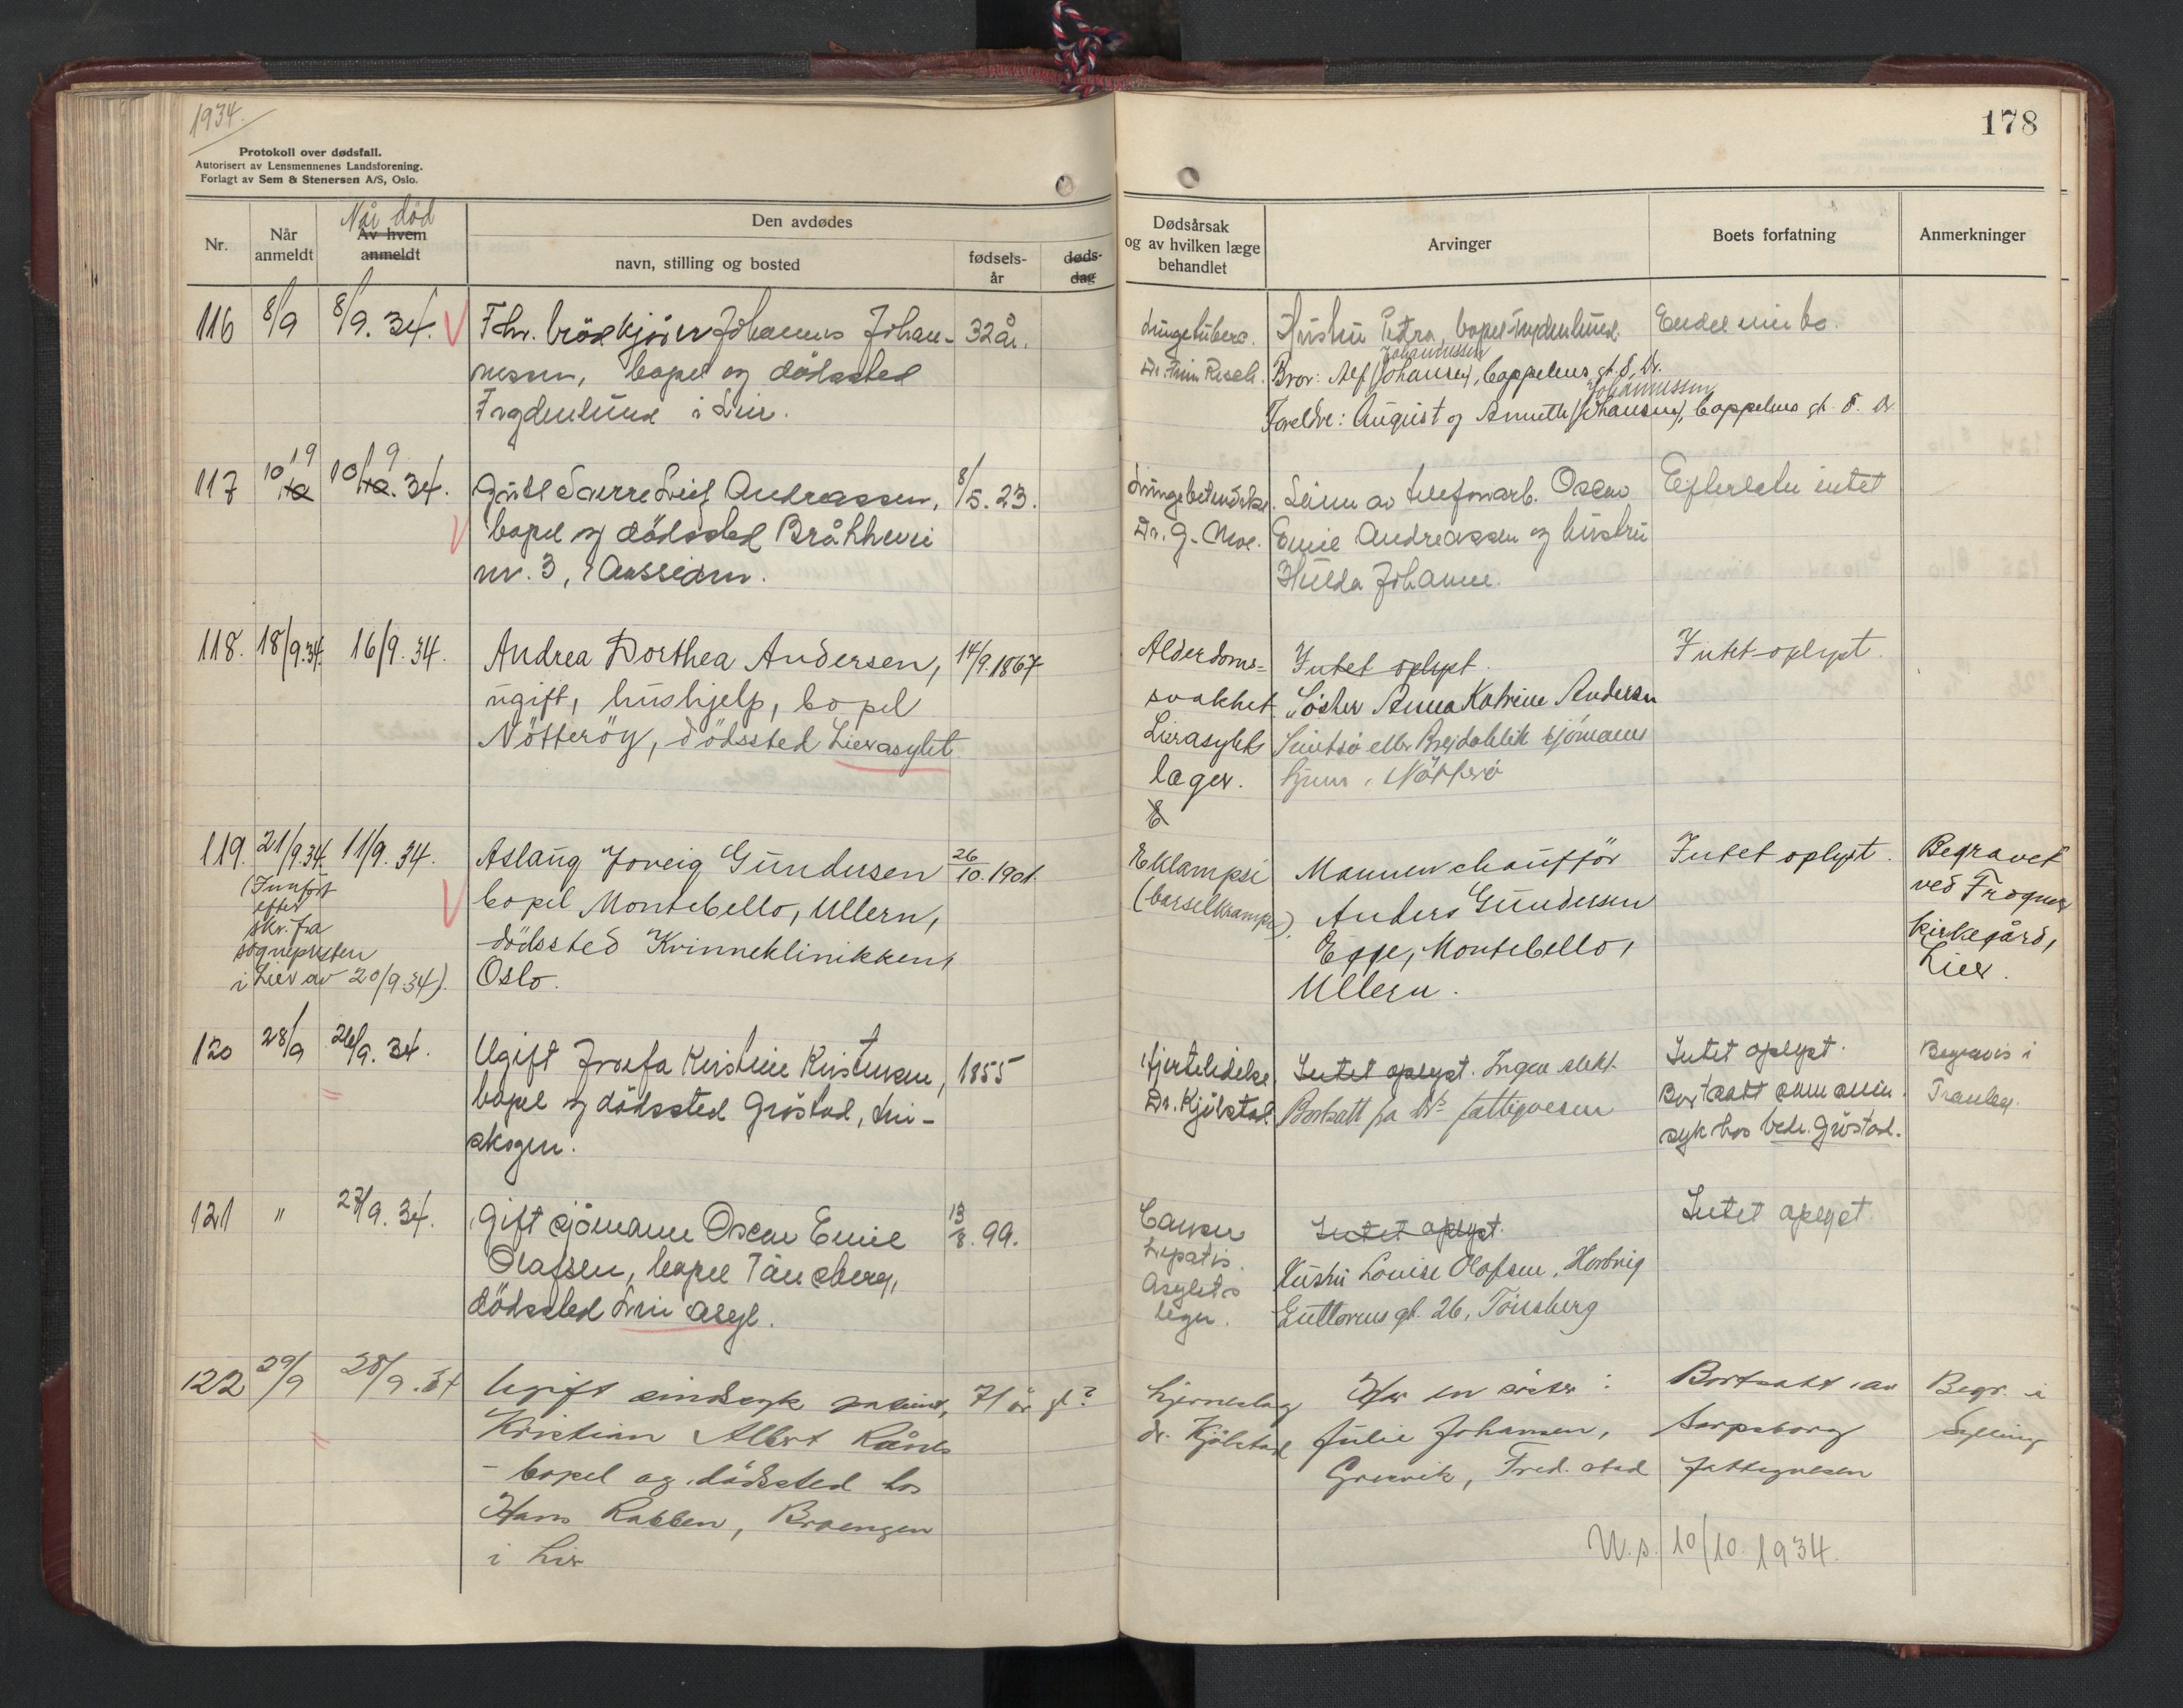 1934.
Protokoll over dødsfall.
Autorisert av Lensmennenes Landsforening.
Forlagt av Sem & Stenersen A/S, Oslo.
178
Nr.
Når anmeldt
Når död
Av hvem anmeldt
Den avdødes
navn, stilling og bosted
fødsels-år
døds-dag
Dødsårsak og av hvilken læge behandlet
Arvinger
Boets forfatning
Anmerkninger
116 8/9 8/9. 34. Fhv. brödkjörer Johannes Johan- 32 år.
nessen, bopel og dödssted
Frydenlund i Lier.
Lungetuberc.
Dr. Finn
Hustru Petra, bopel Frydenlund.
Johannessen
Bror: Alf (Johansen), Cappelens gt. 8, Dr.
Johannessen
Foreldre: August og Annette (Johansen), Cappelens gt. 8. Dr.
117 10/9 10/9. 34. Gutt Sverre Leif Andreassen, 8/5. 23.
bopel og dödssted Bråhheien
nr. 3,
Lungebetendelse.
Dr. G. Moe.
Sönn av telefonarb. Oscar
Emil Andreassen og hustru
Hulda Johanne.
Efterlater intet
118. 18/9.34. 16/9. 34. Andrea Dorthea Andersen, 14/9.1867
ugift, hushjelp, bopel
Nötteröy, dödssted Lierasylet
Alderdoms=
svakhet
Lierasylets
læger.
Intet oplyst.
Söster Anna Katrine Andersen
hjem, Nötterö
Intet oplyst.
119. 21/9.34. 11/9. 34. Aslaug Joveig Gundersen 26/10.1901.
bopel Montebello, Ullern,
dödssted Kvinneklinikken,
Oslo.
(Innfört
efter
skr. fra
sognepresten
i Lier av 20/9.34).
Eklampsi
(barselkrampe).
Mannen chaufför
Anders Gundersen
Egge, Montebello,
Ullern.
Intet oplyst.
Begravet
ved Frogner
kirkegård,
Lier.
120 28/9 26/9. 34. Ugift Josefa Kirstine Kristensen, 1855
bopel og dödssted Gröstad, Lier-
skogen.
Hjertelidelse.
Dr. Kjölstad
Intet oplyst. Ingen slekt.
Bortsatt fra Dr. fattigvesen
Intet oplyst.
Bortsatt som sinn.
syk hos Gröstad.
Begraves i
Tranby.
121 " 27/9. 34. Gift sjömann Oscar Emil 13/8. 99.
Olafsen, bopel Tönsberg,
dödssted Lier asyl.
Cancer
hepatis.
Asylets
leger.
Intet oplyst.
Hustru Louise Olafsen,
gt. 26, Tönsberg
Intet oplyst.
122 29/9 28/9. 34 Ugift sindssyk patient, 71 år gl?
Kristian Albert
- bopel og dödssted hos
Hans Rabben, Braengen
i Lier
Hjerneslag
dr. Kjölstad
Har en söster:
Julie Johansen,
Gresvik, Fred. stad
Bortsatt av
Sarpsborg
fattigvesen
Begr. i
Sylling
U.s. 10/10. 1934.